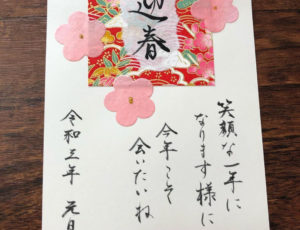 迎春
笑顔な一年に
なります様に
今年こそ
会いたいね
令和三年 元旦